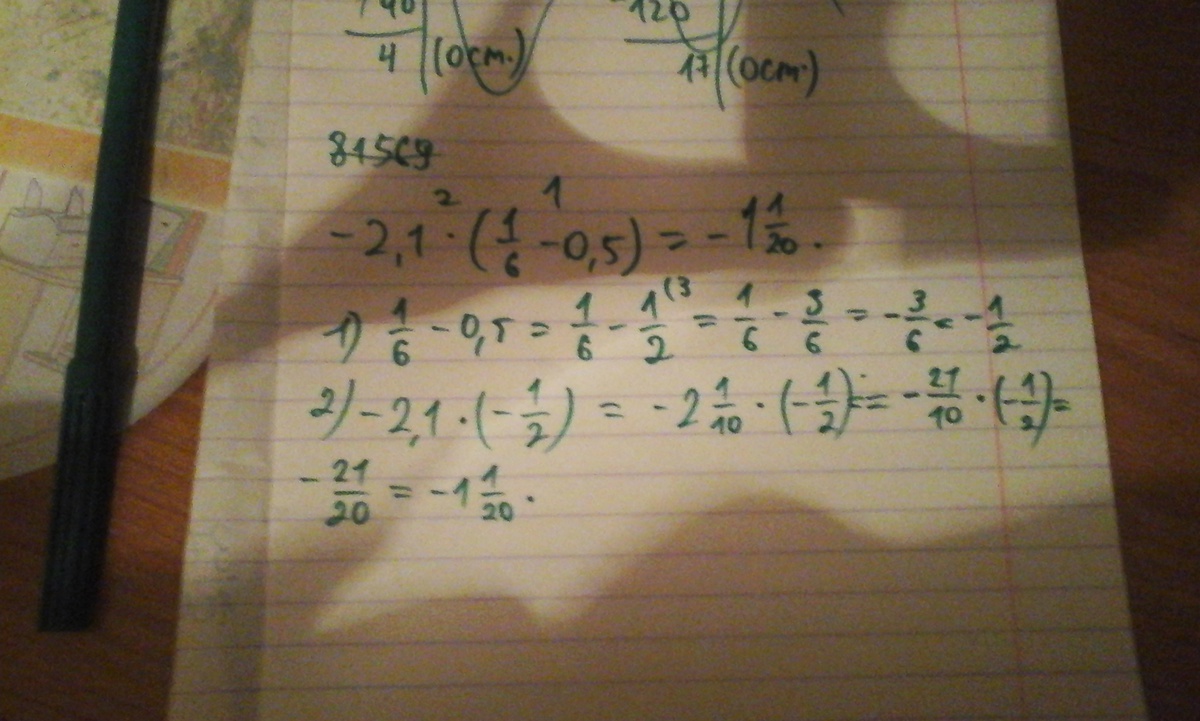 740 -120
4 (ост.) 17 (ост.)
81569
2 1
-2,1 · (1/6 - 0,5) = -1 1/20.
1) 1/6 - 0,5 = 1/6 - 1/2 (3 = 1/6 - 3/6 = -3/6 = -1/2
2) -2,1 · (-1/2) = -2 1/10 · (-1/2) = = -21/10 · (-1/2) =
-21/20 = -1 1/20.